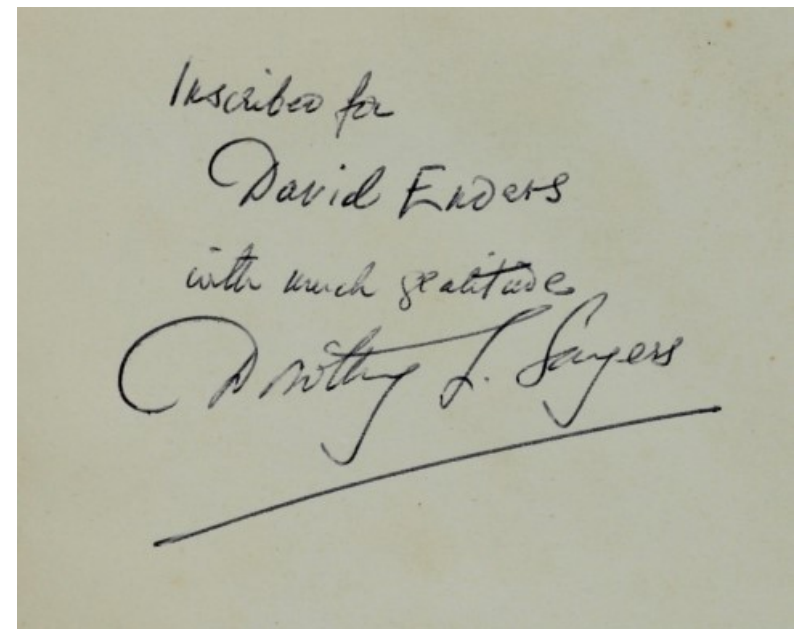 Inscribed for
David Enders
with much gratitude
Dorothy L. Sayers